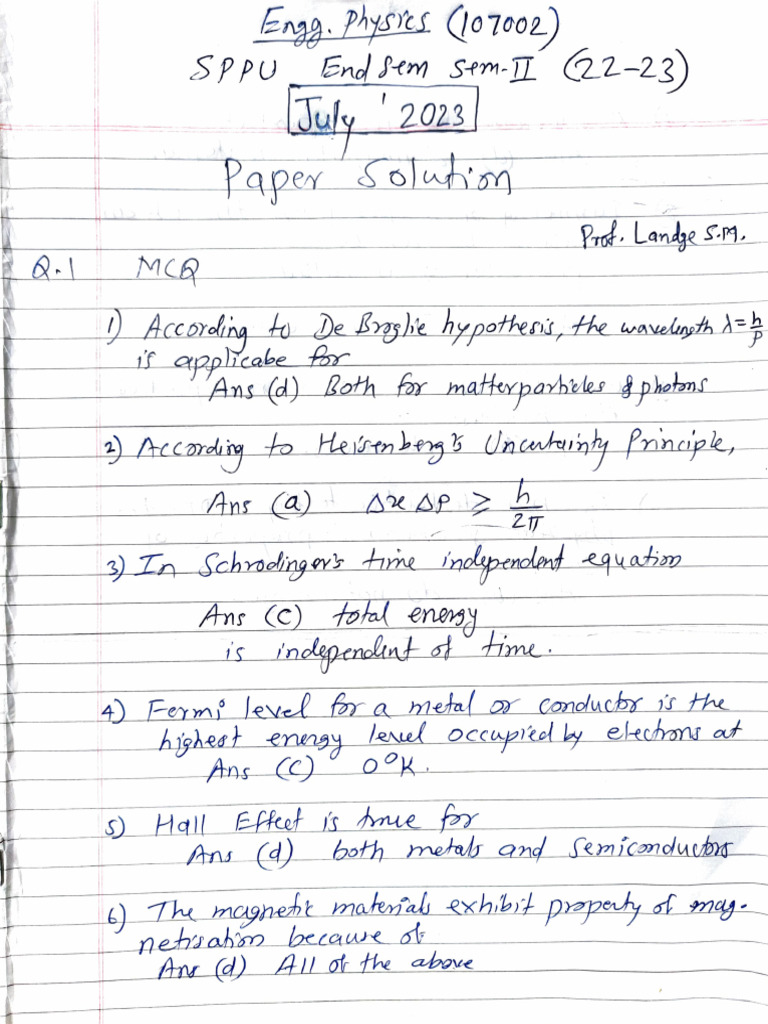 Engg. Physics (107002)
SPPU End Sem Sem-II (22-23)
July ' 2023
Paper Solution
Prof. Landge S.M.
Q.1 MCQ
1) According to De Broglie hypothesis, the wavelength λ=h/p
is applicabe for
Ans (d) Both for matterparticles & photons
2) According to Heisenberg's Uncertainty Principle,
Ans (a) Δx Δp ≥ h/2π
3) In Schrodinger's time independent equation
Ans (c) total energy
is independent of time.
4) Fermi level for a metal or conductor is the
highest energy level occupied by electrons at
Ans (c) 0°K.
5) Hall Effect is true for
Ans (d) both metals and semiconductors
6) The magnetic materials exhibit property of mag-
netisation because of
Ans (d) All of the above